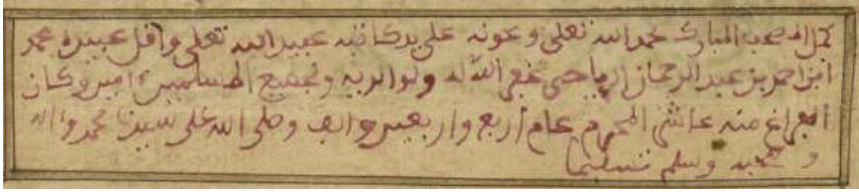 كمل المصحب المبارك بحمد الله تعلى وعونه على يد كاتبه عبيد الله تعلى وافل عبيده محمد
ابن احمد بن عبد الرحمان الرياحى غفر الله له ولوالديه ولجميع المسلمين ءامين وكان
الفراغ منه عاشر المحرم عام اربع واربعين والف وصلى الله على سيدنا محمد وءاله
وصحبه وسلم تسليما